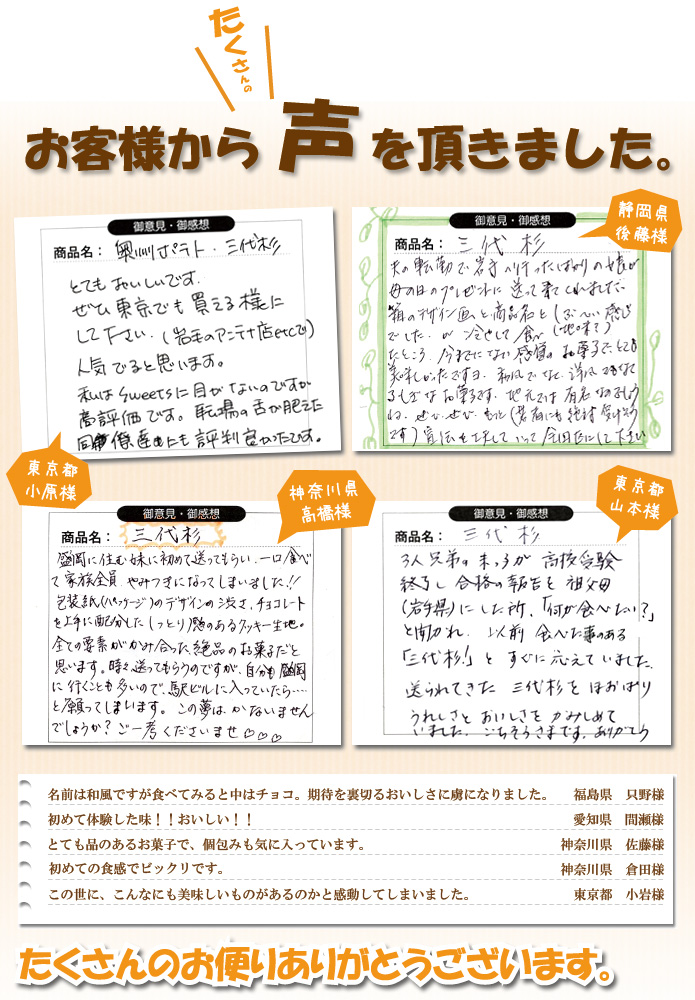 たくさんの
お客様から声を頂きました。
御意見・御感想
商品名：奥州ポテト・三代杉
とてもおいしいです。
ぜひ東京でも買える様に
して下さい。(岩手のアンテナ店etcで)
人気でると思います。
私はsweetsに目がないのですが
高評価です。職場の舌が肥えた
同僚達にも評判良かったです。
東京都
小原様
静岡県
後藤様
御意見・御感想
商品名：三代杉
夫の転勤で岩手に行ったばかりの娘が
母の日のプレゼントに送って来てくれました。
箱のデザイン画と商品名としぶーい感じ
(地味？)
でした。が 冷やして食べ
たところ、今までにない感覚のお菓子で、とても
美味しかったですヨ。和風でなく、洋風でもなく
ふしぎなお菓子です。地元では有名なのでしょう
ね。ぜひ、ぜひ、もっと(若者にも絶対受けそう
です)宣伝を
御意見・御感想
商品名：三代杉
神奈川県
高橋様
盛岡に住む妹に初めて送ってもらい、一口食べ
て家族全員 やみつきになってしまいました!!
包装紙(パッケージ)のデザインの渋さ、チョコレート
を上手に配分した しっとり感のあるクッキー生地。
全ての要素がかみ合った絶品のお菓子だと
思います。時々送ってもらうのですが、自分も盛岡
に行くことも多いので、駅ビルに入っていたら……
と願ってしまいます。この夢は、かないません
でしょうか？ご一考くださいませ♡♡♡
御意見・御感想
商品名：三代杉
東京都
山本様
3人兄弟の末っ子が 高校受験
終了し 合格の報告を 祖父母
(岩手県)にした所、「何が食べたい？」
と聞かれ、以前 食べた事のある
「三代杉！」と すぐに応えていました。
送られてきた 三代杉を ほおばり
うれしさと おいしさを かみしめて
いました。ごちそうさまです。ありがとう
名前は和風ですが食べてみると中はチョコ。期待を裏切るおいしさに虜になりました。　福島県　只野様
初めて体験した味！！おいしい！！　愛知県　間瀬様
とても品のあるお菓子で、個包みも気に入っています。　神奈川県　佐藤様
初めての食感でビックリです。　神奈川県　倉田様
この世に、こんなにも美味しいものがあるのかと感動してしまいました。　東京都　小岩様
たくさんのお便りありがとうございます。